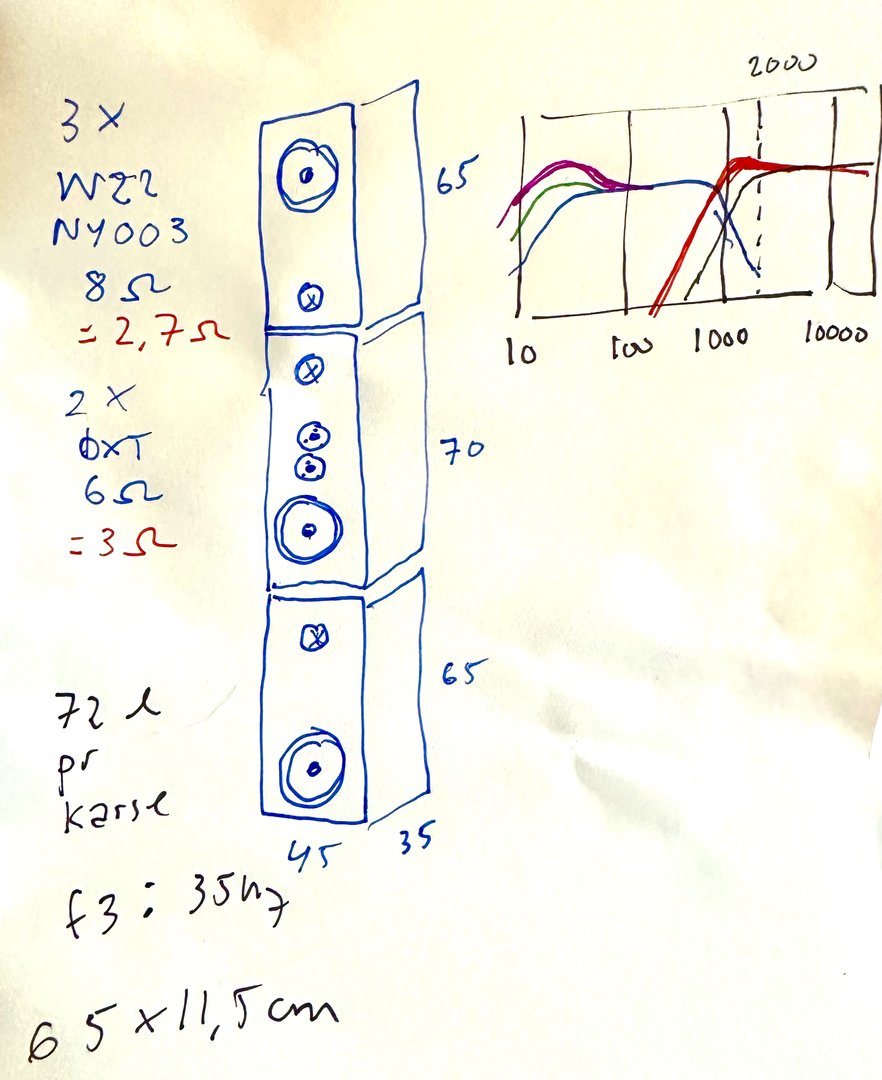 3 X
W22
NY003
8 Ω
= 2,7 Ω
2 X
OXT
6 Ω
= 3 Ω
72 l
pr
karse
f3 : 35hz
65 x 11,5 cm
65
70
65
45
35
2000
10
100
1000
10000